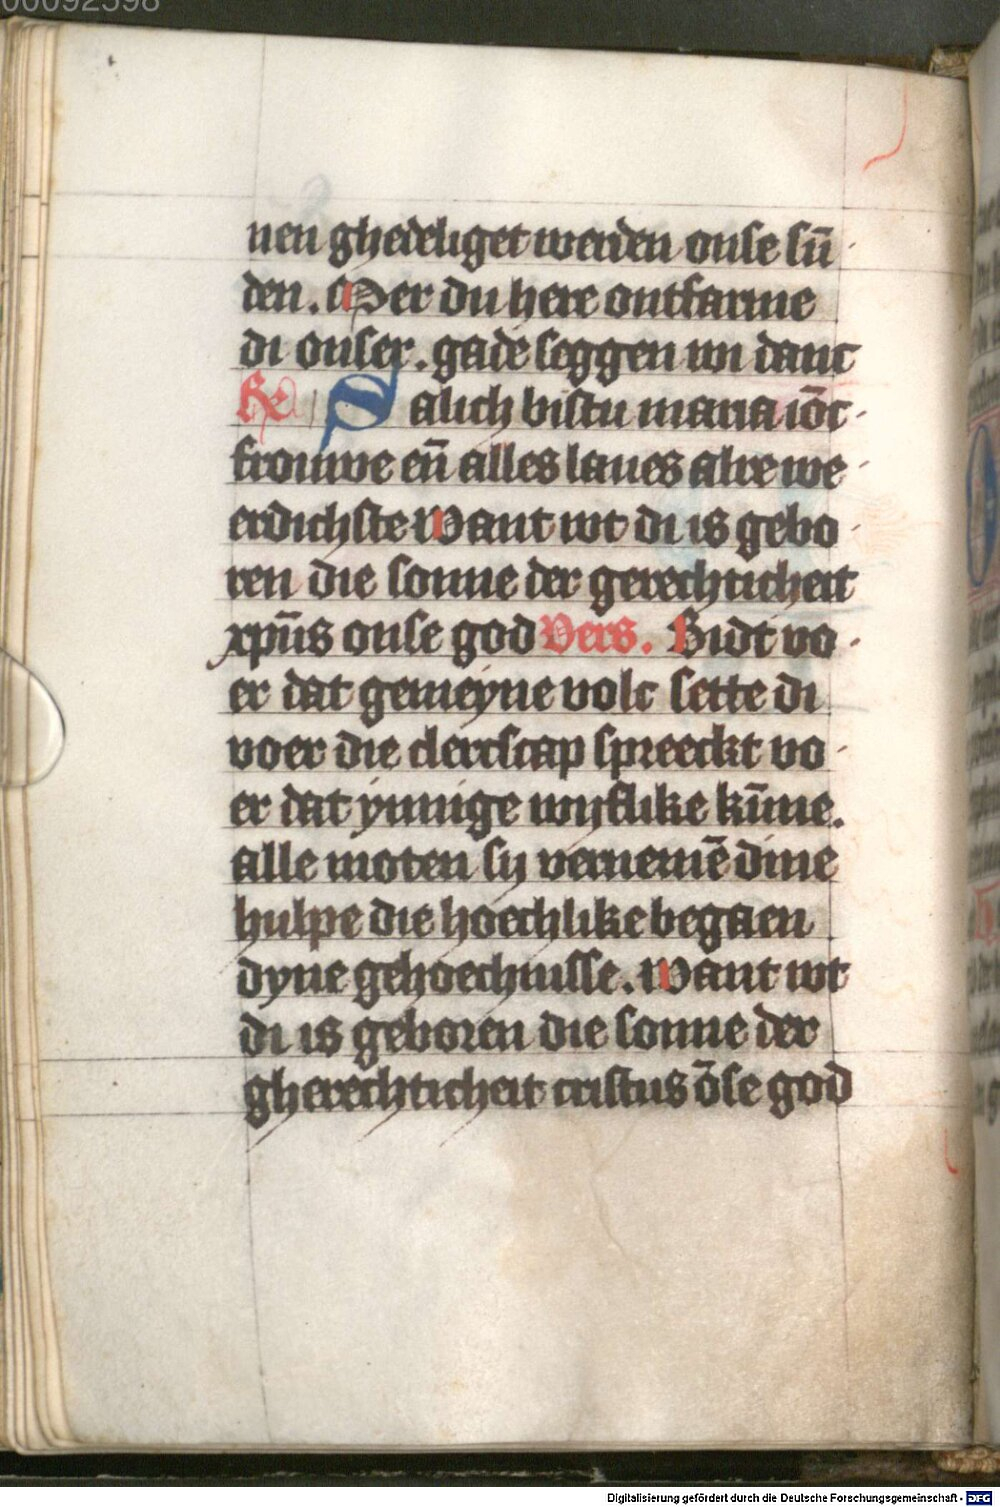 00092598
nen ghedeliget werden onse sū
den. Mer du here ontfarme
di onser. gade seggen wi danc
Re Salich bistu maria iōc
frouwe eñ alles laues alre we
erdichste Want wt di is gebo
ren die sonne der gerechticheit
xpūs onse god Vers. Bidt vo
er dat gemeyne volc sette di
voer die clercscap spreeckt vo
er dat ynnige wyflike kūne.
alle moten sy vernemē dine
hulpe die hoechlike begaen
dyne gehoechnisse. Want wt
di is geboren die sonne der
gherechticheit cristus ōse god
Digitalisierung gefördert durch die Deutsche Forschungsgemeinschaft - DFG